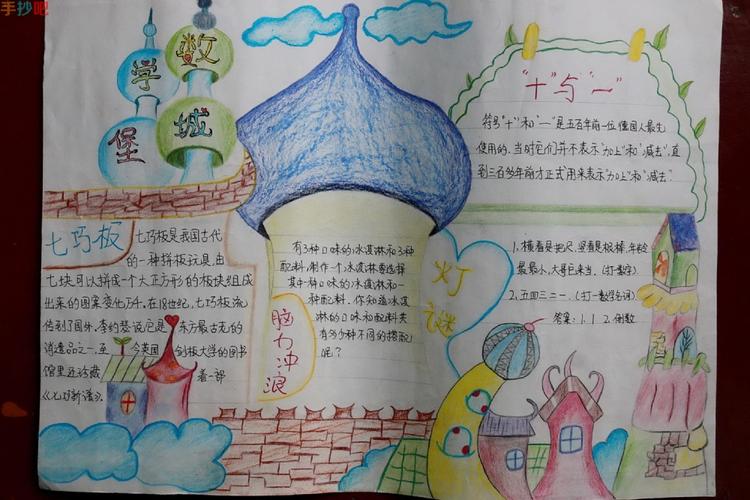 手抄吧
数学
城堡
七巧板
七巧板是我国古代
的一种拼板玩具,由
七块可以拼成一个大正方形的板块组成
出来的图案变化万千。在18世纪,七巧板流
传到了国外。李约瑟说它是东方最古老的
消遣品之一,至今英国剑桥大学的图书
馆里还珍藏着一部
《七巧新谱》。
有3种口味的冰淇淋和3种
配料,制作一个冰淇淋要选择
其中一种口味的冰淇淋和一
种配料。你知道冰淇
淋的口味和配料共
有多少种不同的搭配
呢?
脑力冲浪
灯谜
“十”与“一”
符号“十”和“一”是五百年前一位德国人最先
使用的。当时它们并不表示“加上”和“减去”,直
到三百多年前才正式用来表示“加上”和“减去”。
1、横看是把尺,竖看是根棒,年龄
最最小,大哥它来当。(打一数字)
2、五四三二一。(打一数学名词)
答案:1. 1 2. 倒数